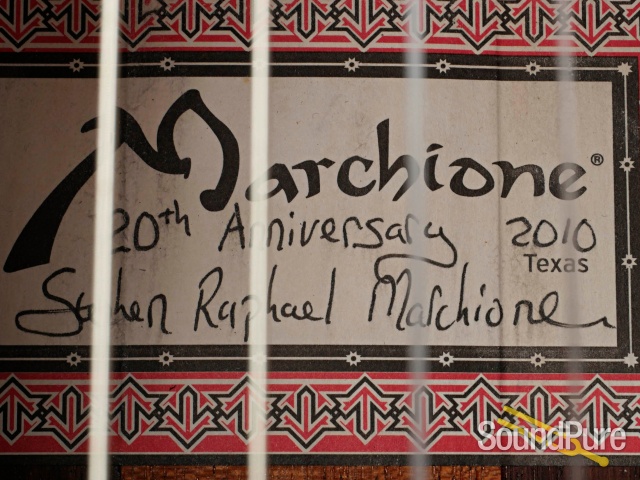 Marchione®
20th Anniversary 2010
Texas
Stephen Raphael Marchione
SoundPure